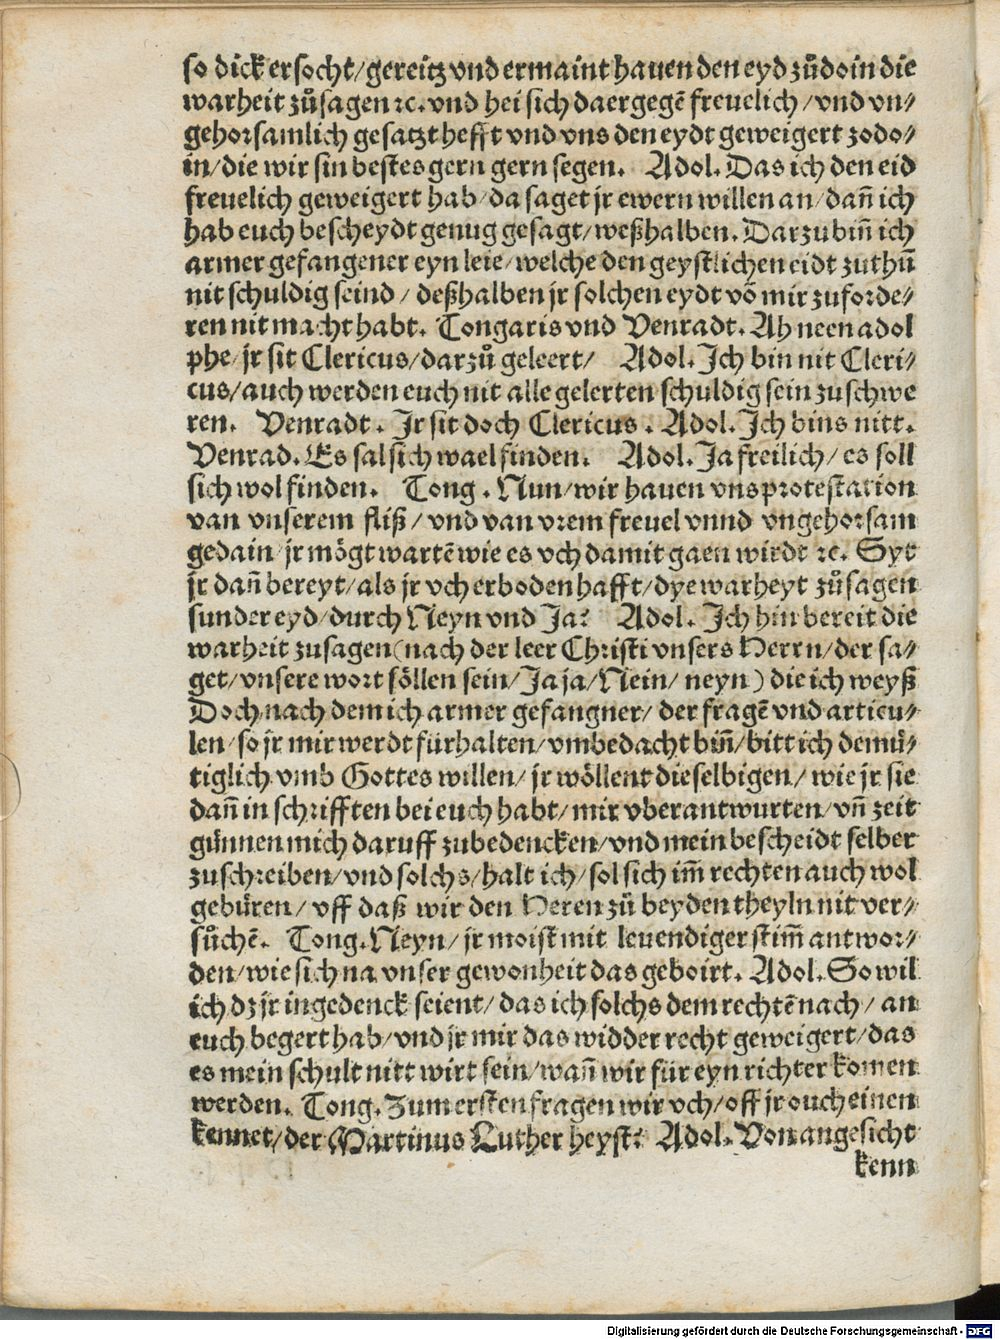 so dick ersocht/gereitz vnd ermaint hauen den eyd zůdoin die
warheit zůsagen ꝛc. vnd hei sich daergegē freuelich/vnd vn⸗
gehorsamlich gesatzt hefft vnd vns den eydt geweigert zodo⸗
in/die wir sin bestes gern gern segen. Adol. Das ich den eid
freuelich geweigert hab/da saget jr ewern willen an/dañ ich
hab euch bescheydt genug gesagt/weßhalben. Darzu biñ ich
armer gefangener eyn leie/welche den geystlichen eidt zuthū
nit schuldig seind/deßhalben jr solchen eydt vō mir zuforde⸗
ren nit macht habt. Tongaris vnd Venradt. Ah neen adol
phe/jr sit Clericus/darzů geleert/ Adol. Ich bin nit Cleri⸗
cus/auch werden euch nit alle gelerten schuldig sein zu schwe
ren. Venradt. Ir sit doch Clericus. Adol. Ich bins nitt.
Venrad. Es sal sich wael finden. Adol. Ja freilich/es soll
sich wol finden. Tong. Nun/wir hauen vns protestation
van vnserem fliß/vnd van vrem freuel vnnd vngehorsam
gedain/jr mögt wartē wie es vch damit gaen wirdt ꝛc. Syt
jr dañ bereyt/als jr vch erboden hafft/dye warheyt zůsagen
sunder eyd/durch Neyn vnd Ja? Adol. Ich bin bereit die
warheit zusagen(nach der leer Christi vnsers Herrn/der sa⸗
get/vnsere wort söllen sein/Ja ja/Nein/neyn) die ich weyß
Doch nach dem ich armer gefangner/der fragē vnd articu⸗
len/so jr mir werdt fürhalten/vmbedacht biñ/bitt ich demü⸗
tiglich vmb Gottes willen/jr wöllent dieselbigen/wie jr sie
dañ in schrifften bei euch habt/mir vberantwurten/vñ zeit
günnen mich daruff zubedencken/vnd mein bescheidt selber
zuschreiben/vnd solchs/halt ich/sol sich im̄ rechten auch wol
gebüren/vff daß wir den Heren zů beyden theyln nit ver⸗
sůchē. Tong. Neyn/jr moist mit leuendiger stim̄ antwor⸗
den/wie sich na vnser gewonheit das geboirt. Adol. So wil
ich dz jr ingedenck seient/das ich solchs dem rechtē nach/an
euch begert hab/vnd jr mir das widder recht geweigert/das
es mein schult nitt wirt sein/wañ wir für eyn richter komen
werden. Tong. Zum ersten fragen wir vch/off jr ouch einen
kennet/der Martinus Luther heyst? Adol. Von angesicht
kenn
Digitalisierung gefördert durch die Deutsche Forschungsgemeinschaft - DFG